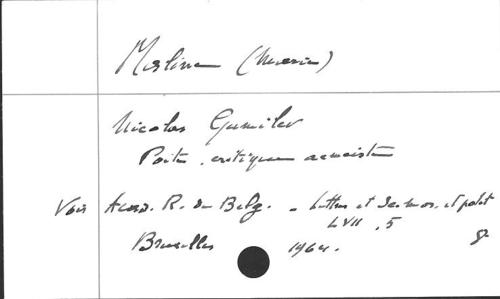 Maline (Marie)
Nicolas Gumilev
Poète, critique acméiste
Voir Acad. R. de Belg. - Lettres et Sc. mor. et polit
LVII, 5
Bruxelles 1964.